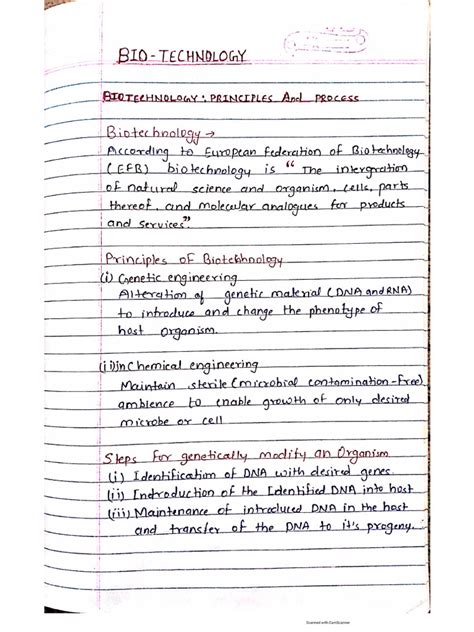 BIO-TECHNOLOGY
BIOTECHNOLOGY: PRINCIPLES And PROCESS
Biotechnology →
According to European Federation of Biotechnology
(EFB) biotechnology is "The intergration
of natural science and organism, cells, parts
thereof, and molecular analogues for products
and services".
Principles of Biotechnology
(i) Genetic engineering
Alteration of genetic material (DNA and RNA)
to introduce and change the phenotype of
host organism.
(ii) in Chemical engineering
Maintain sterile (microbial contamination-free)
ambience to enable growth of only desired
microbe or cell
Steps for genetically modify an Organism
(i) Identification of DNA with desired genes.
(ii) Introduction of the Identified DNA into host
(iii) Maintenance of introduced DNA in the host
and transfer of the DNA to it's progeny.
Scanned with CamScanner